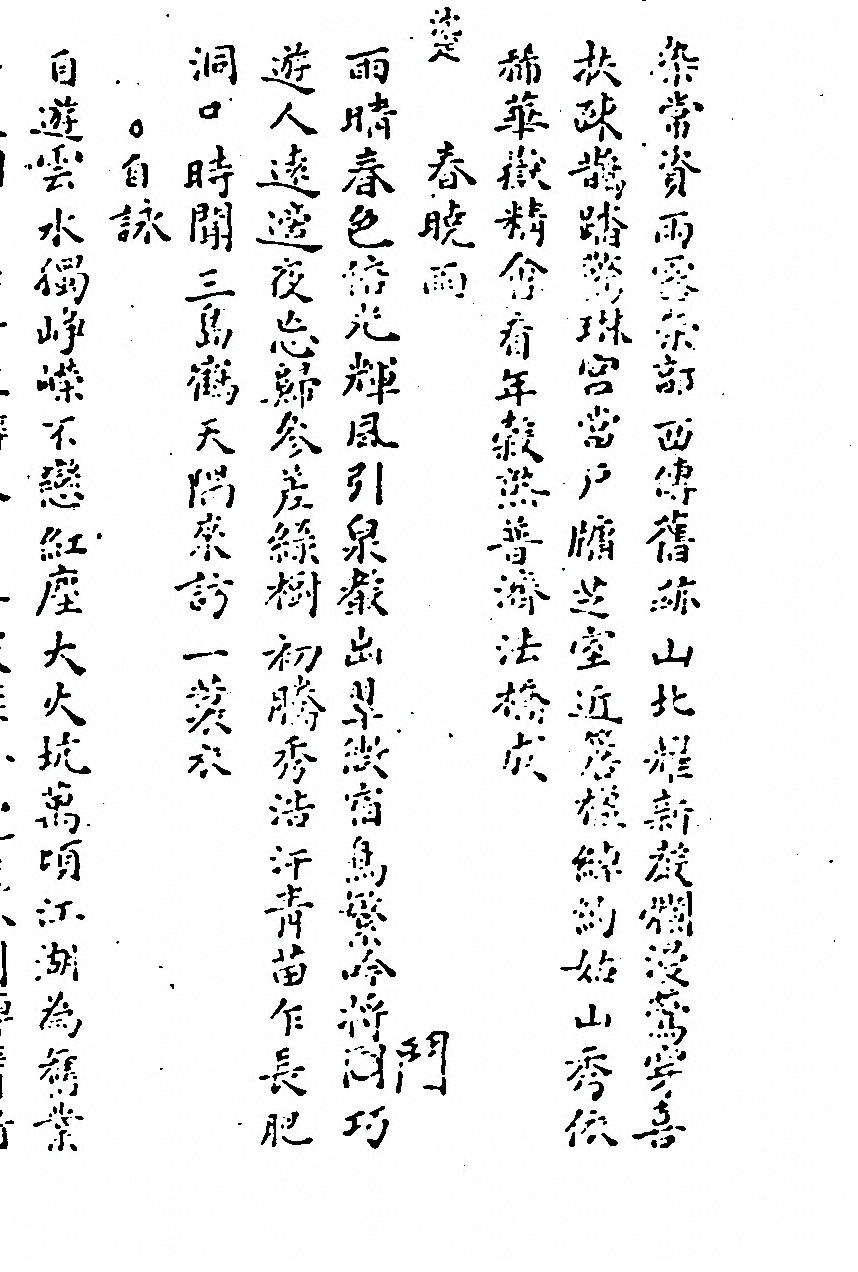 染常資雨露榮部西傳舊跡山北耀新莚爛漫鶯穿喜
扶疎鵲踏驚琳宮當戶牖芝室近簷楹綽約姑山秀依
稀華嶽精會看年穀熟普濟法橋成
春曉雨
雨晴春色倍光輝風引泉聲出翠微宿鳥繁吟將鬪巧
遊人遠邇夜忘歸參差綠樹初騰秀浩汗青苗乍長肥
洞口時開三島鶴天隅來訪一蓑衣
自詠
自遊雲水獨崢嶸不戀紅塵大火坑萬頃江湖為舊業